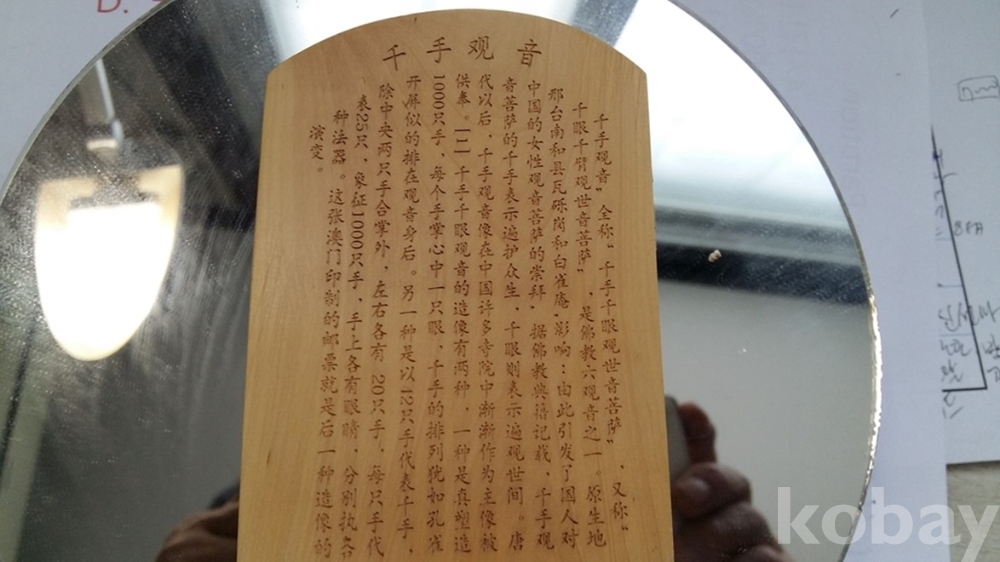 千手观音
"千手观音" 全称"千手千眼观世音菩萨"、又称"
千眼千臂观世音菩萨"，是佛教六观音之一。原生地
邢台南和县瓦砾岗和白雀庵,影响：由此引发了国人对
中国的女性观音菩萨的崇拜. 据佛教典籍记载，千手观
音菩萨的千手表示遍护众生，千眼则表示遍观世间。唐
代以后，千手观音像在中国许多寺院中渐渐作为主像被
供奉。[二] 千手千眼观音的造像有两种，一种是真塑造
1000只手，每个手掌心中一只眼，千手的排列犹如孔雀
开屏似的排在观音身后。另一种是以12只手代表千手，
除中央两只手合掌外，左右各有 20只手，每只手代
表25只，象征1000只手，手上各有眼睛，分别执各
种法器。这张澳门印制的邮票就是后一种造像的
演变。
kobay